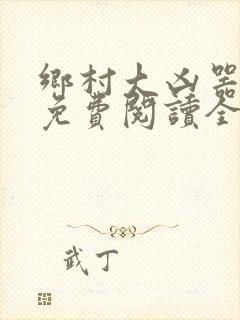 鄉村大凶器
免費閱讀全
武丁